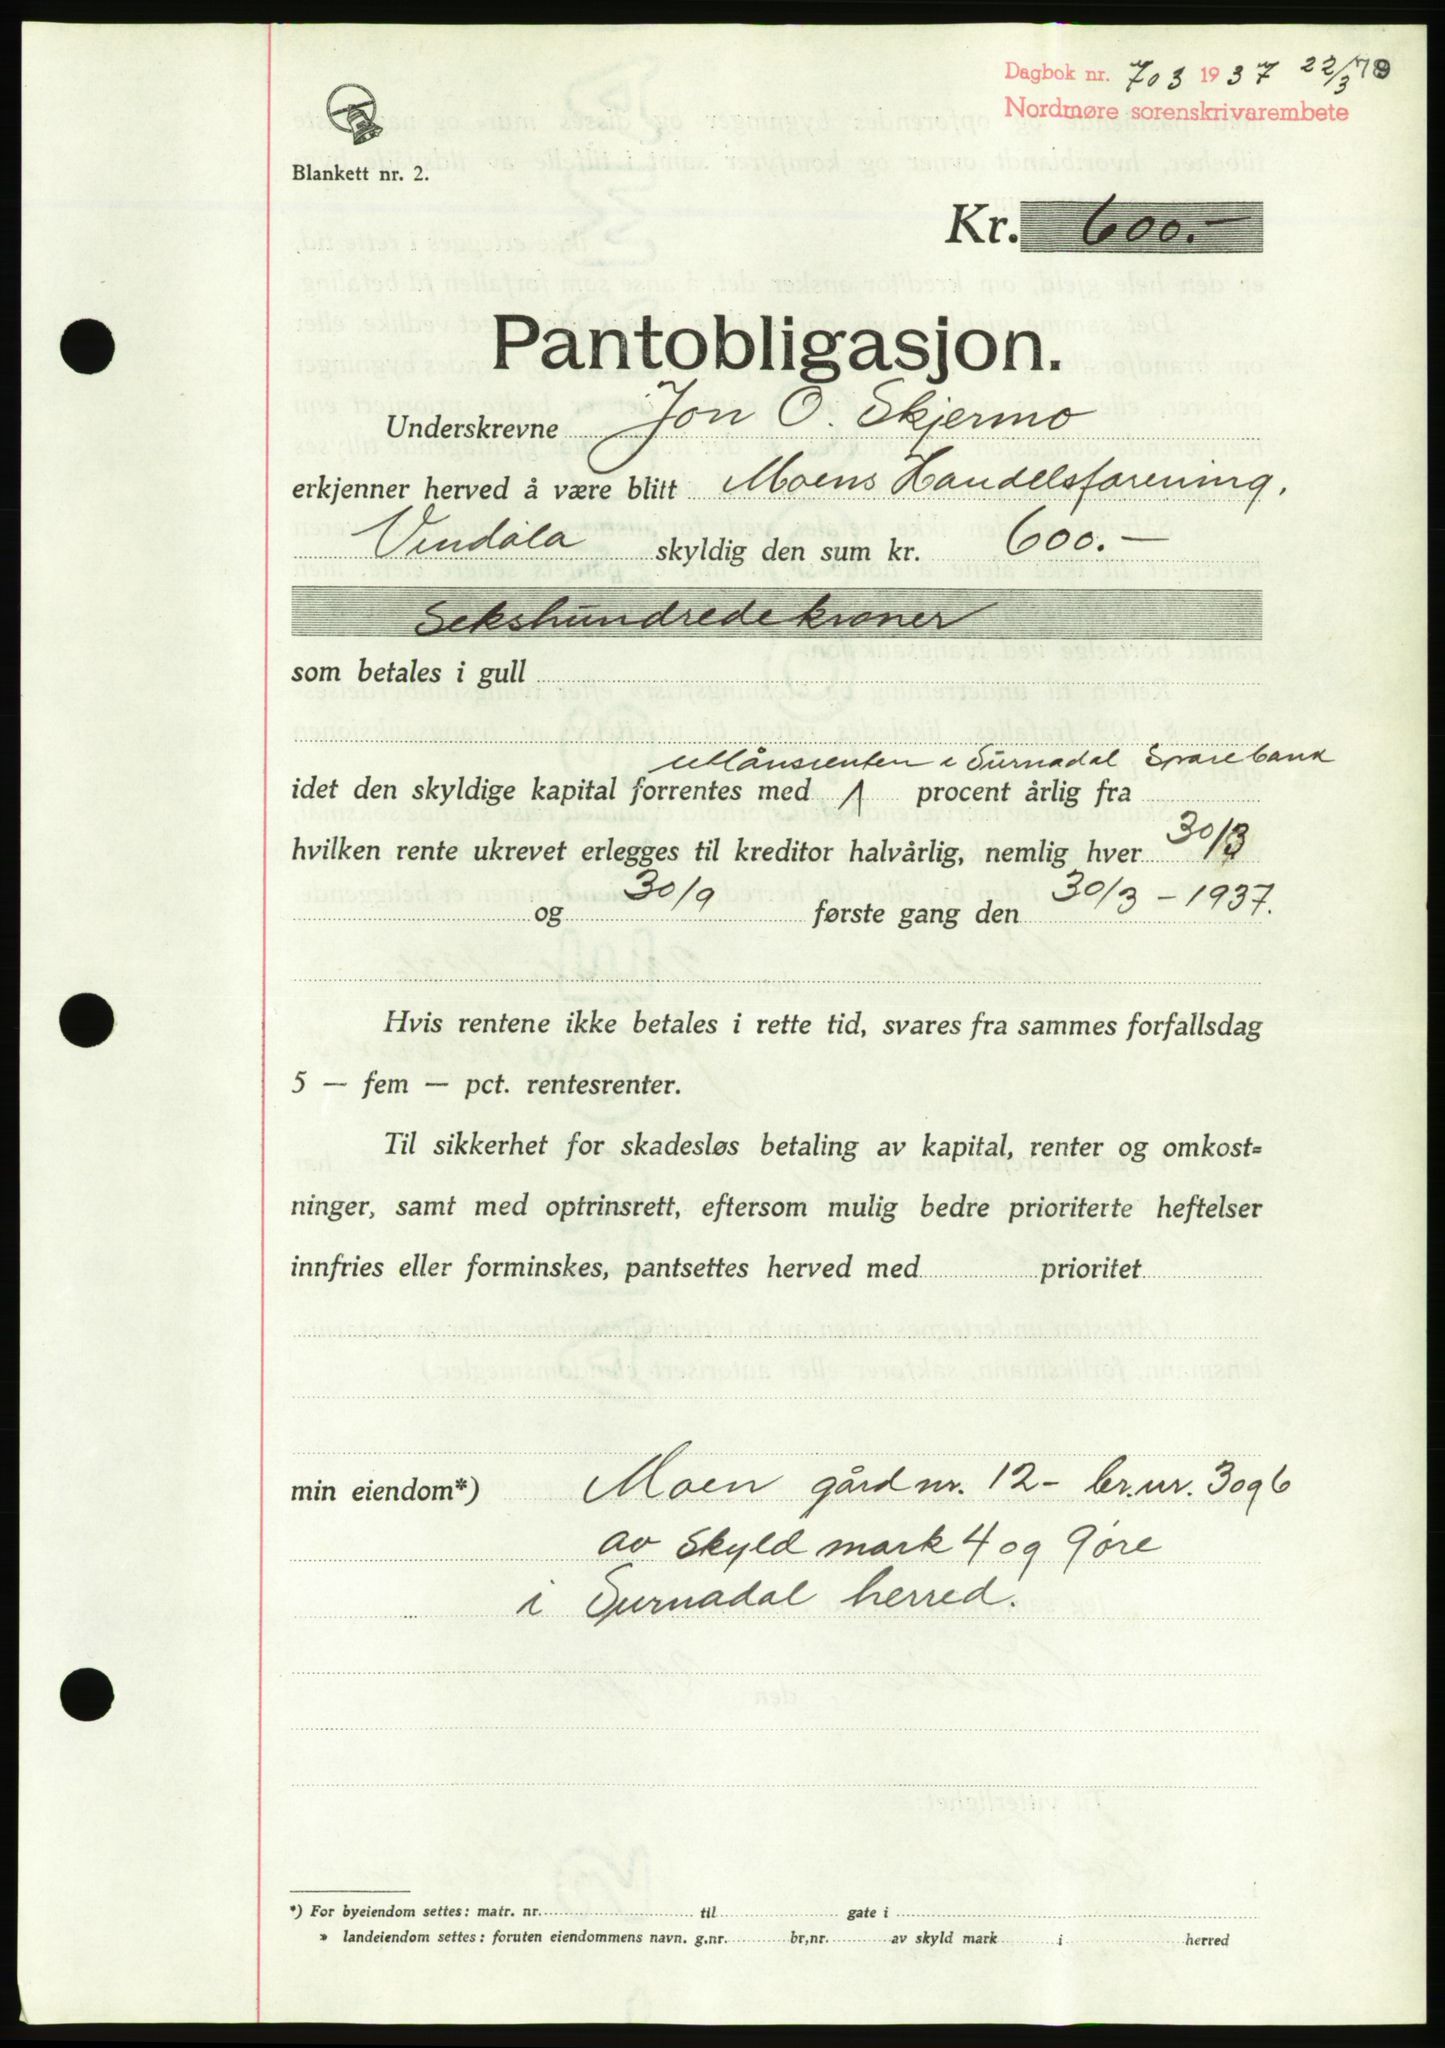 Dagbok nr. 703 1937 22/3
Nordmøre sorenskrivarembete
Blankett nr. 2.
Kr. 600.-
Pantobligasjon.
Underskrevne Jon O. Skjermo
erkjenner herved å være blitt Moens Handelsforening,
Vindøla skyldig den sum kr. 600.-
Sekshundrede kroner
som betales i gull
utlånsrenten i Surnadal Sparebank
idet den skyldige kapital forrentes med procent årlig fra
hvilken rente ukrevet erlegges til kreditor halvårlig, nemlig hver 30/3
og 30/9 første gang den 30/3 - 1937.
Hvis rentene ikke betales i rette tid, svares fra sammes forfallsdag
5 — fem — pct. rentesrenter.
Til sikkerhet for skadesløs betaling av kapital, renter og omkost=
ninger, samt med optrinsrett, eftersom mulig bedre prioriterte heftelser
innfries eller forminskes, pantsettes herved med prioritet
min eiendom*) Moen gård nr. 12- br.nr. 3 og 6
av skyld mark 4 og 9 øre
i Surnadal herred.
*) For byeiendom settes: matr. nr. til gate i
» landeiendom settes: foruten eiendommens navn. g.nr. br,nr. av skyld mark i herred